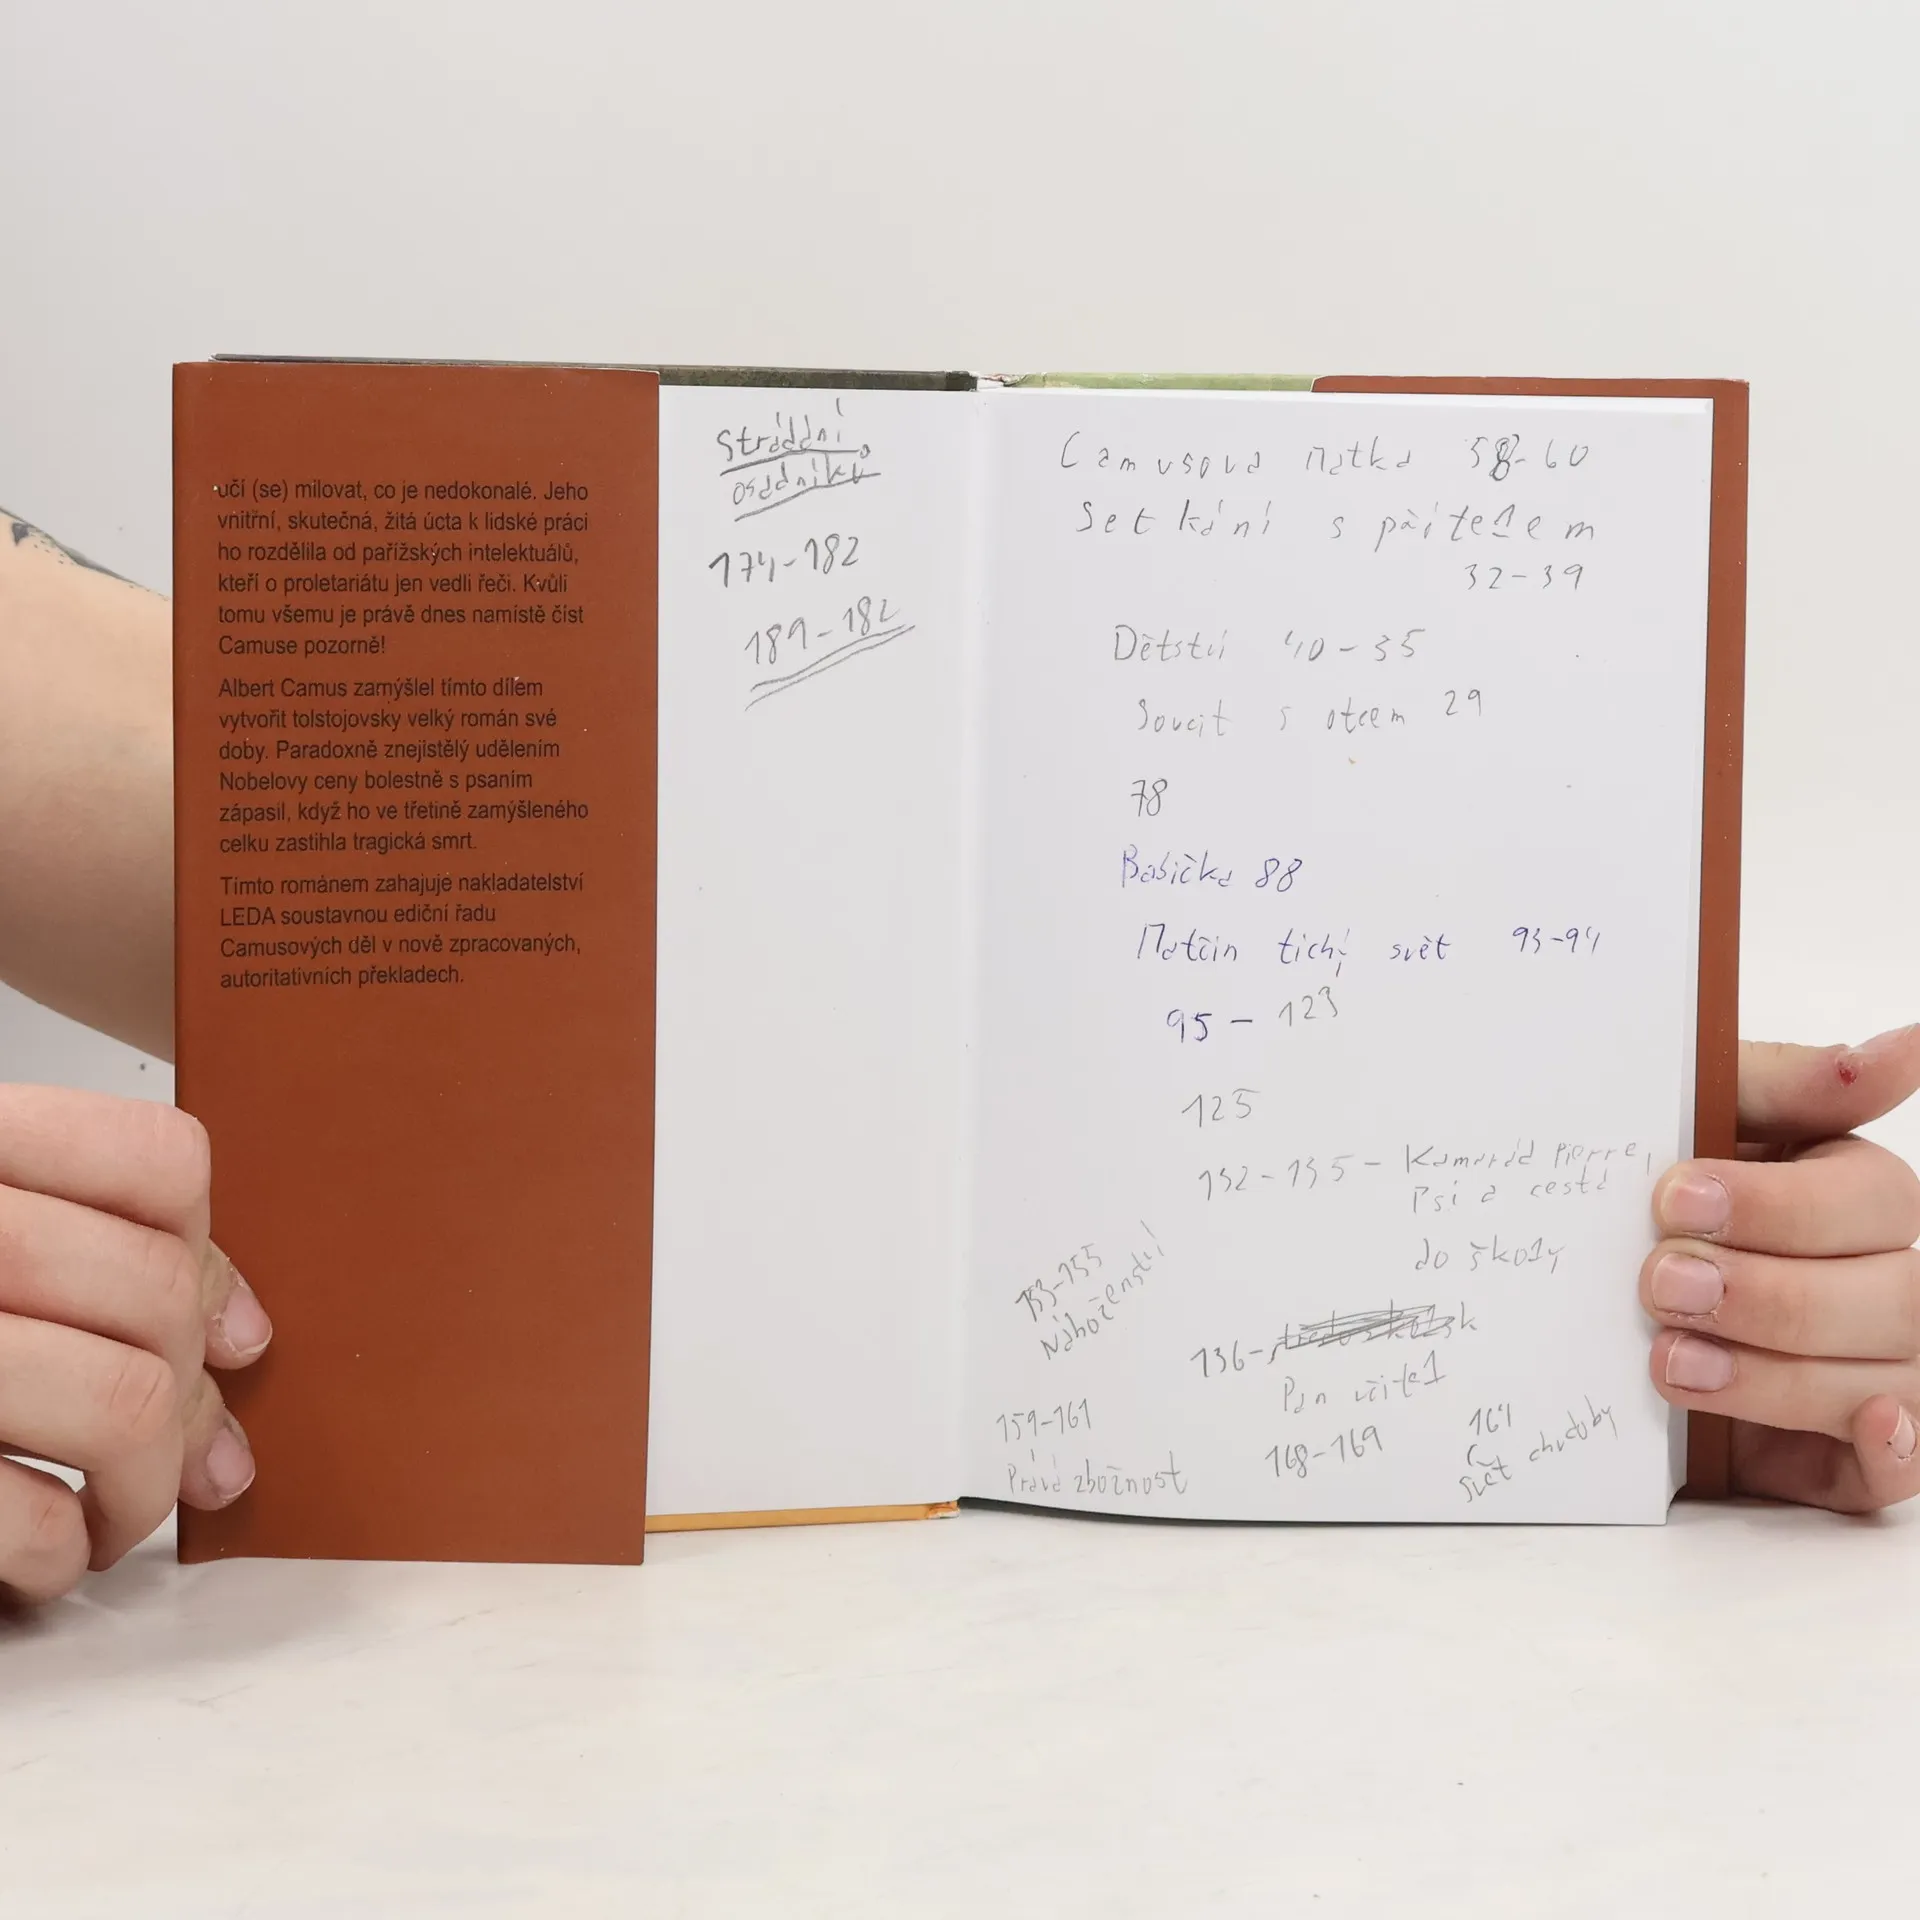 učí (se) milovat, co je nedokonalé. Jeho
vnitřní, skutečná, žitá úcta k lidské práci
ho rozdělila od pařížských intelektuálů,
kteří o proletariátu jen vedli řeči. Kvůli
tomu všemu je právě dnes namístě číst
Camuse pozorně!
Albert Camus zamýšlel tímto dílem
vytvořit tolstojovsky velký román své
doby. Paradoxně znejistělý udělením
Nobelovy ceny bolestně s psaním
zápasil, když ho ve třetině zamýšleného
celku zastihla tragická smrt.
Tímto románem zahajuje nakladatelství
LEDA soustavnou ediční řadu
Camusových děl v nově zpracovaných,
autoritativních překladech.
Strádání
osadníků
174-182
189-182
Camusova Matka 58-60
Setkání s přítelem
32-39
Dětství 40-35
Soucit s otcem 29
78
Babička 88
Matčin tichý svět 93-94
95 - 123
125
132-135 - Kamarád Pierre,
Psi a cesta
do školy
153-155
Náboženství
136-
Pan učitel
159-161
Pravá zbožnost
168-169
164
Svět chudoby